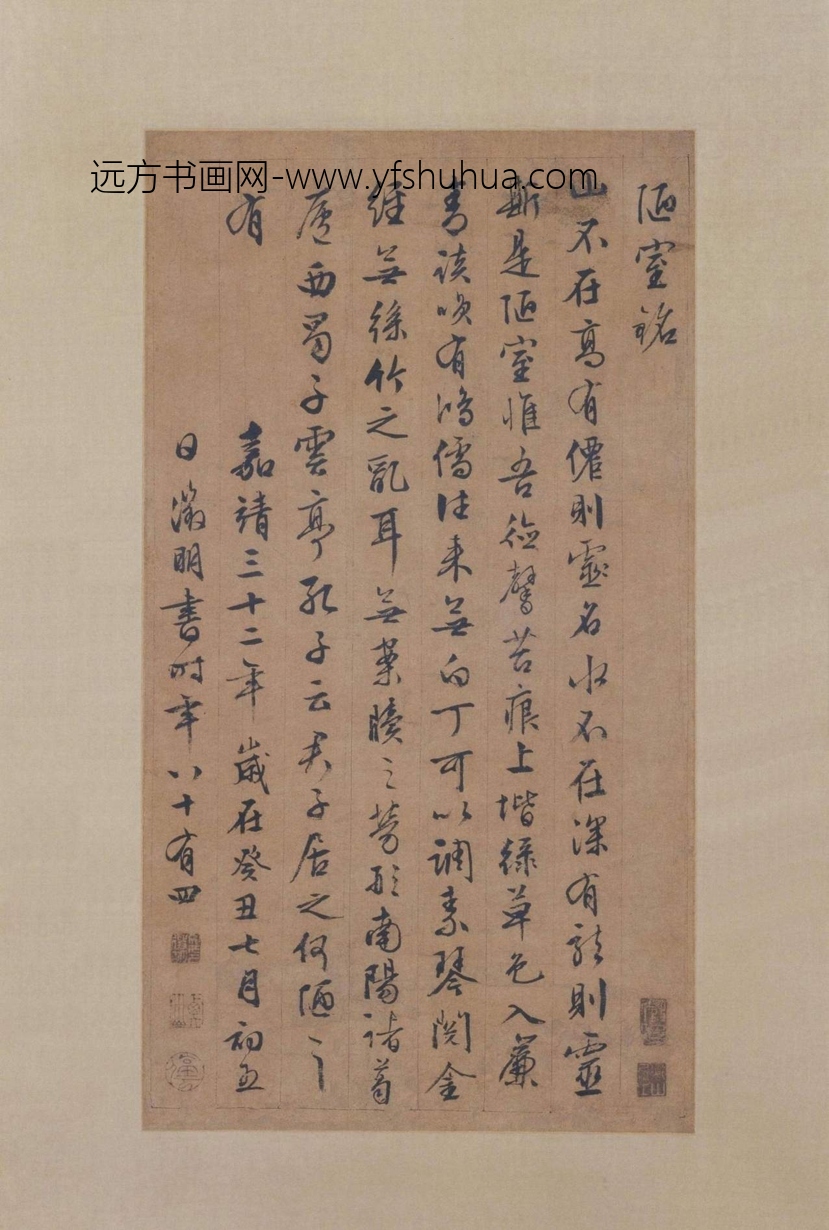 远方书画网-www.yfshuhua.com
陋室銘
山不在高有僊則靈名水不在深有龍則靈
斯是陋室惟吾德馨苔痕上堦綠草色入簾
青談咲有鴻儒往来無白丁可以調素琴閱金
經無絲竹之亂耳無案牘之勞形南陽諸葛
廬西蜀子雲亭孔子云君子居之何陋之
有 嘉靖三十二年歲在癸丑七月初五
日徵明書時年八十有四